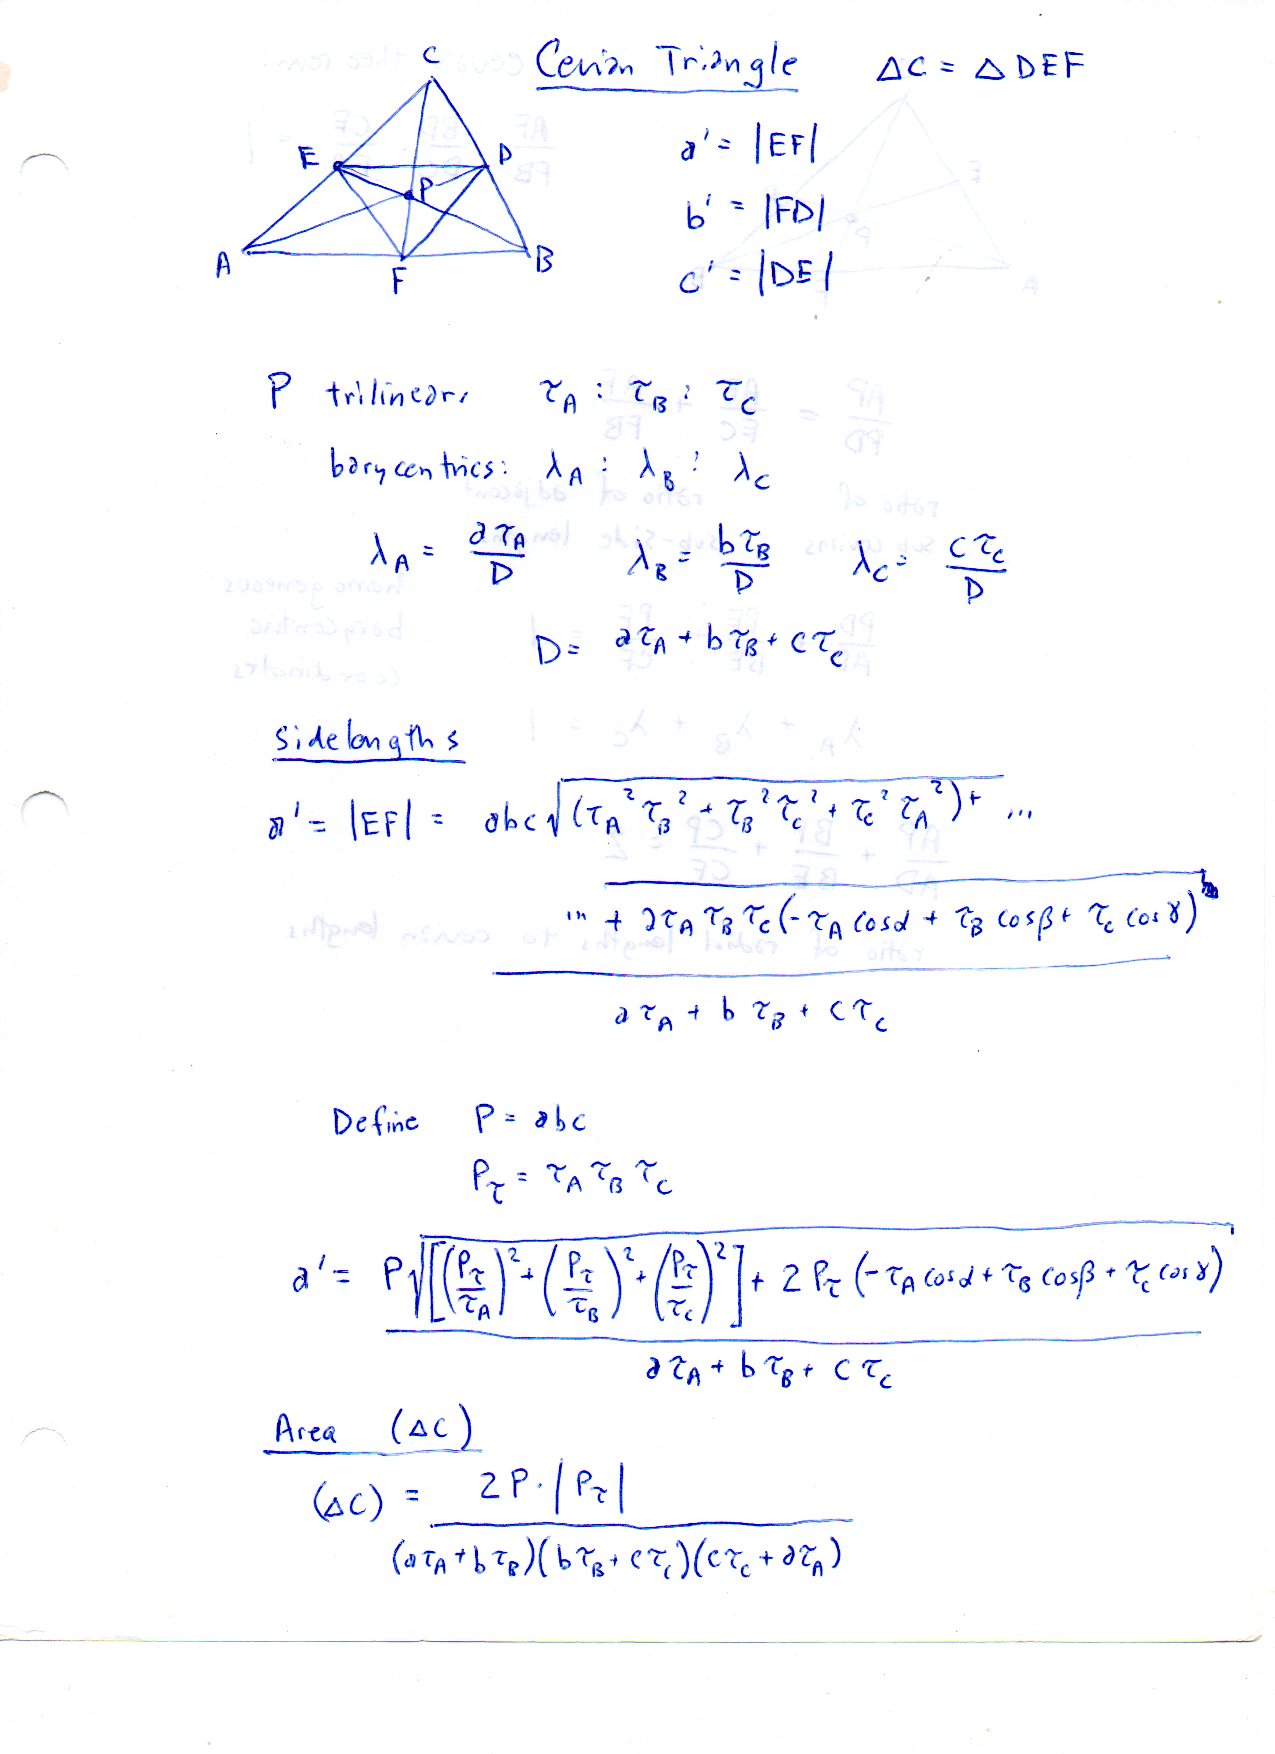 Cevian Triangle ΔC = Δ DEF
C
E D
P
A F B
a' = |EF|
b' = |FD|
c' = |DE|
P trilinears τ_A : τ_B : τ_C
barycentrics: λ_A : λ_B : λ_C
λ_A = aτ_A / D λ_B = bτ_B / D λ_C = cτ_C / D
D = aτ_A + bτ_B + cτ_C
Sidelengths
a' = |EF| = abc √(τ_A² τ_B² + τ_B² τ_C² + τ_C² τ_A²) + ...
... + 2τ_A τ_B τ_C (-τ_A cosα + τ_B cosβ + τ_C cosγ)
aτ_A + bτ_B + cτ_C
Define P = abc
P_τ = τ_A τ_B τ_C
a' = P √[(P_τ/τ_A)² + (P_τ/τ_B)² + (P_τ/τ_C)²] + 2 P_τ (-τ_A cosα + τ_B cosβ + τ_C cosγ)
aτ_A + bτ_B + cτ_C
Area (ΔC)
(ΔC) = 2P·|P_τ|
(aτ_A + bτ_B)(bτ_B + cτ_C)(cτ_C + aτ_A)